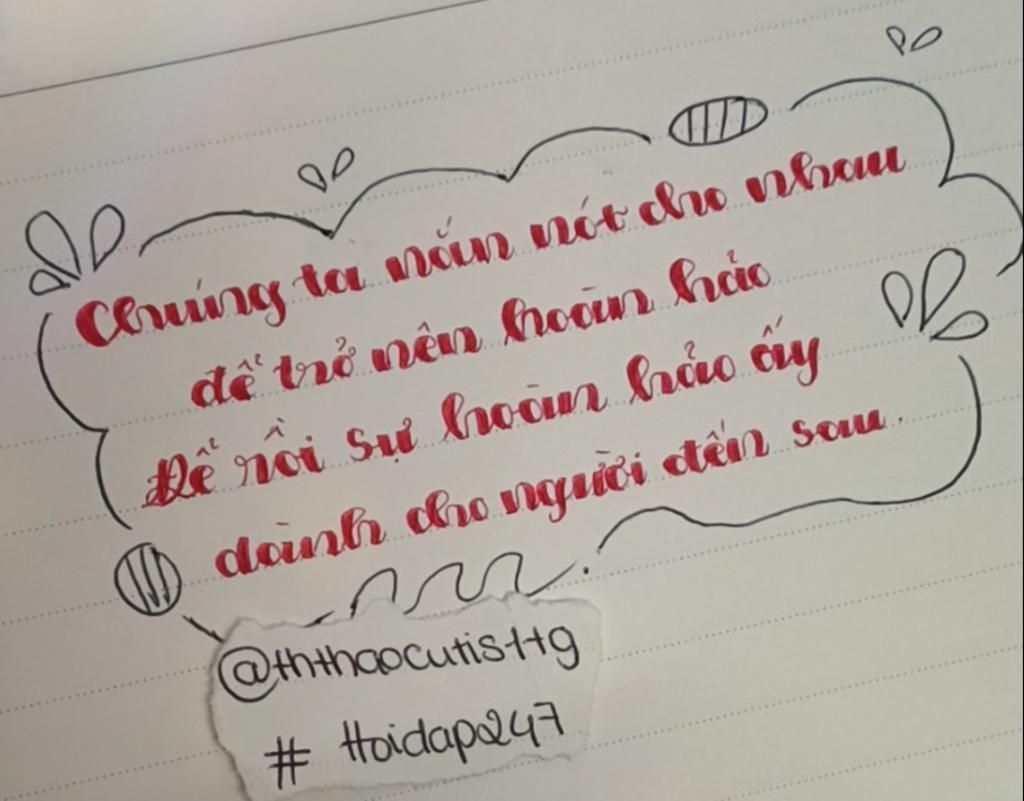 Chúng ta nắn nót cho nhau
để trở nên hoàn hảo
Để rồi sự hoàn hảo ấy
dành cho người đến sau.
@ththaocutis1tg
# Hoidap247